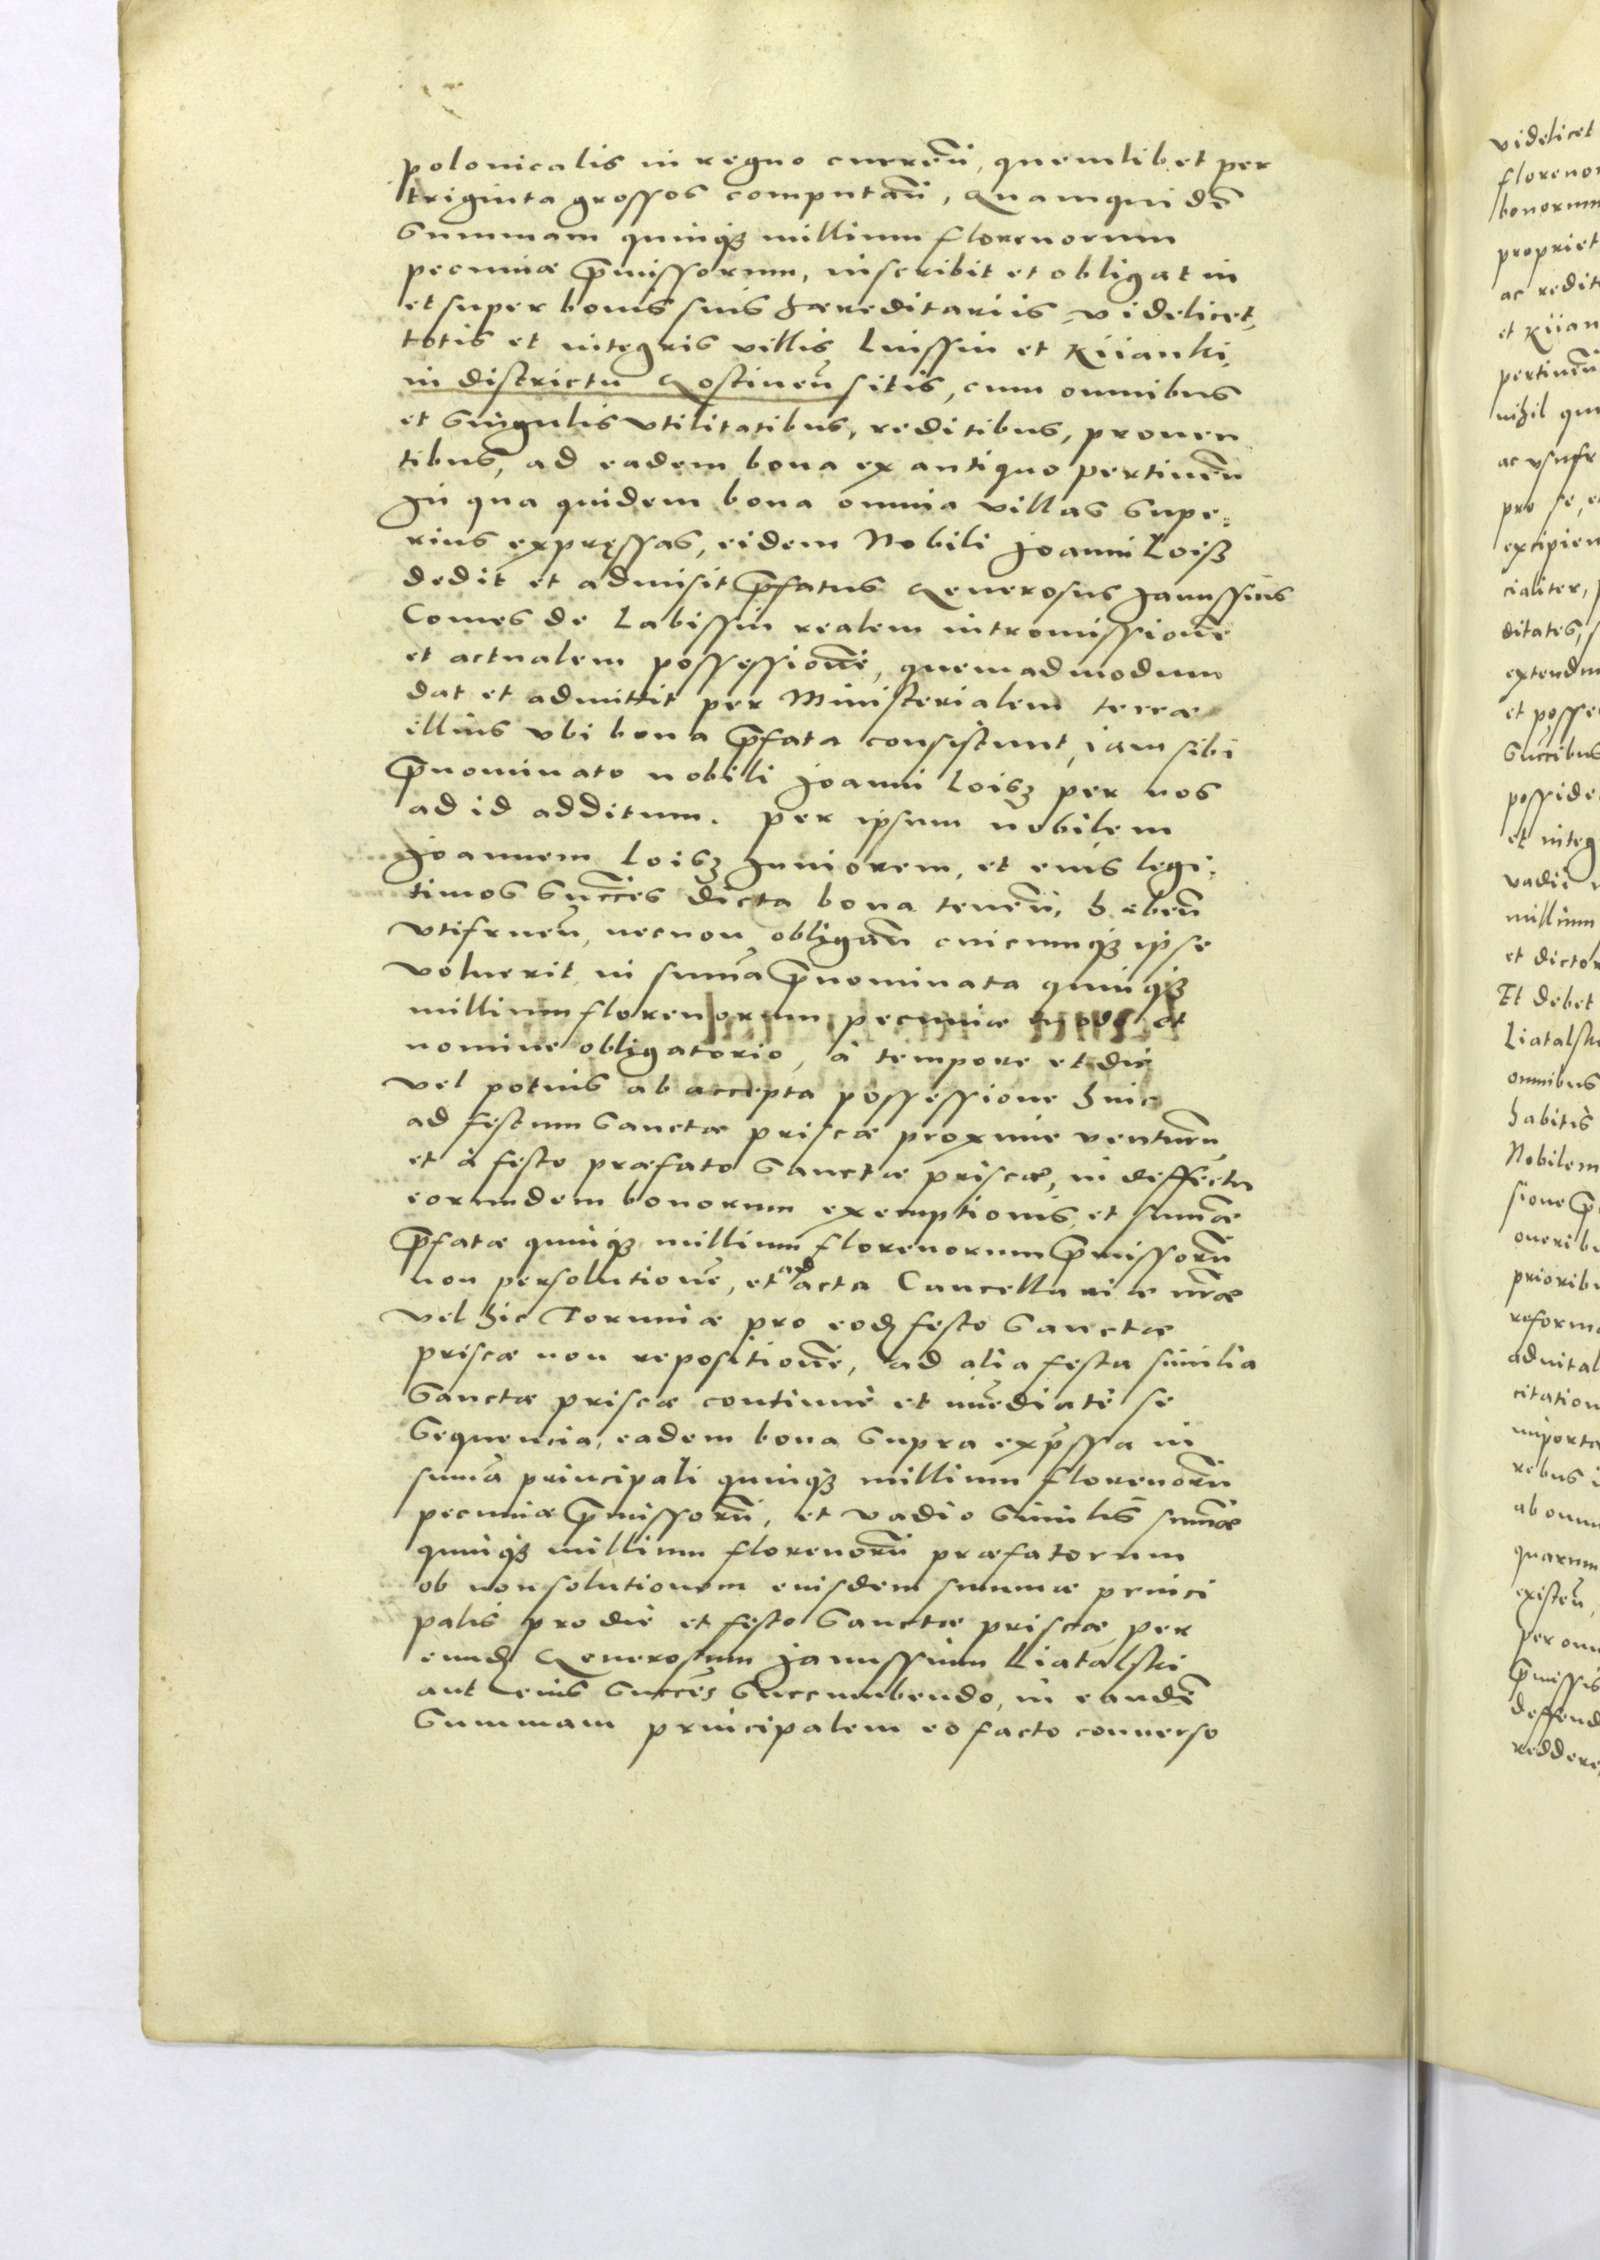 polonicalis in regno curren̄, quemlibet per
triginta grossos computan̄, Quamquidē
Summam quinq3 millium florenorum
pecuniæ p̄missorum, inscribit et obligat in
et super bonis suis hæreditariis, videlicet,
totis et integris villis Luissin et Kuianki,
in districtu Gostinen̄ sitis, cum omnibus
et singulis vtilitatibus, reditibus, prouen
tibus, ad eadem bona ex antiquo pertinen̄
In qua quidem bona omnia villas supe=
rius expręssas, eidem Nobili Joanni Loisß
dedit et admisit p̄fatus Generosus Janussius
Comes de Labissin realem intromissionē
et actualem possessionē, quemadmodum
dat et admittit per Ministerialem terræ
illius vbi bona p̄fata consistunt, iam sibi
p̄nominato nobili Joanni Loisz per nos
ad id additum. per ipsum nobilem
Joannem Loisz Juniorem, et eius legi=
timos succ̄es dicta bona tenen̄, haben̄
vtifruen̄, necnon obligan̄ cuicumq3 ipse
voluerit, in sum̄a p̄nominata quinq3
millium florenorum pecuniæ modo et
nomine obligatorio, à tempore et die
vel potius ab accepta possessione huic
ad festum Sanctæ priscæ proxime venturū,
et à festo præfato Sanctæ priscæ, in deffectu
eorundem bonorum exemptionis, et sum̄æ
p̄fatæ quinq3 millium florenorum p̄missorū
non persolutionē, et ad acta Cancellariæ nr̄æ
vel hic Toruniæ pro eod festo Sanctæ
priscæ non repositionē, ad alia festa similia
Sanctæ priscæ continuè et im̄ediatè se
sequencia, eadem bona supra exp̄ssa in
sum̄a principali quinq3 millium florenorū
pecuniæ p̄missorū, et vadio similis sum̄æ
quinq3 millium florenorū præfatorum
ob non solutionem eiusdem summæ princi
palis pro die et festo Sanctæ priscæ, per
eund Generosum Janussium Liatalski
aut eius succ̄es succumbendo, in eandē
Summam principalem eo facto conuerso
videlicet
bonorum
propriet
ac redit
et Kuian
pertinen̄
nihil
ac vsufr
pro se, e
excipien
cialiter,
ditates,
et posse
posside
et integ
vadii
millium
et dictor
Et debet
Liatalsk
omnibus
habitis
Nobilem
sione p̄
oneribu
prioribu
reform
citation
importa
rebus
ab omn
quarum
existen̄,
per omn
p̄missis
deffend
reddere,